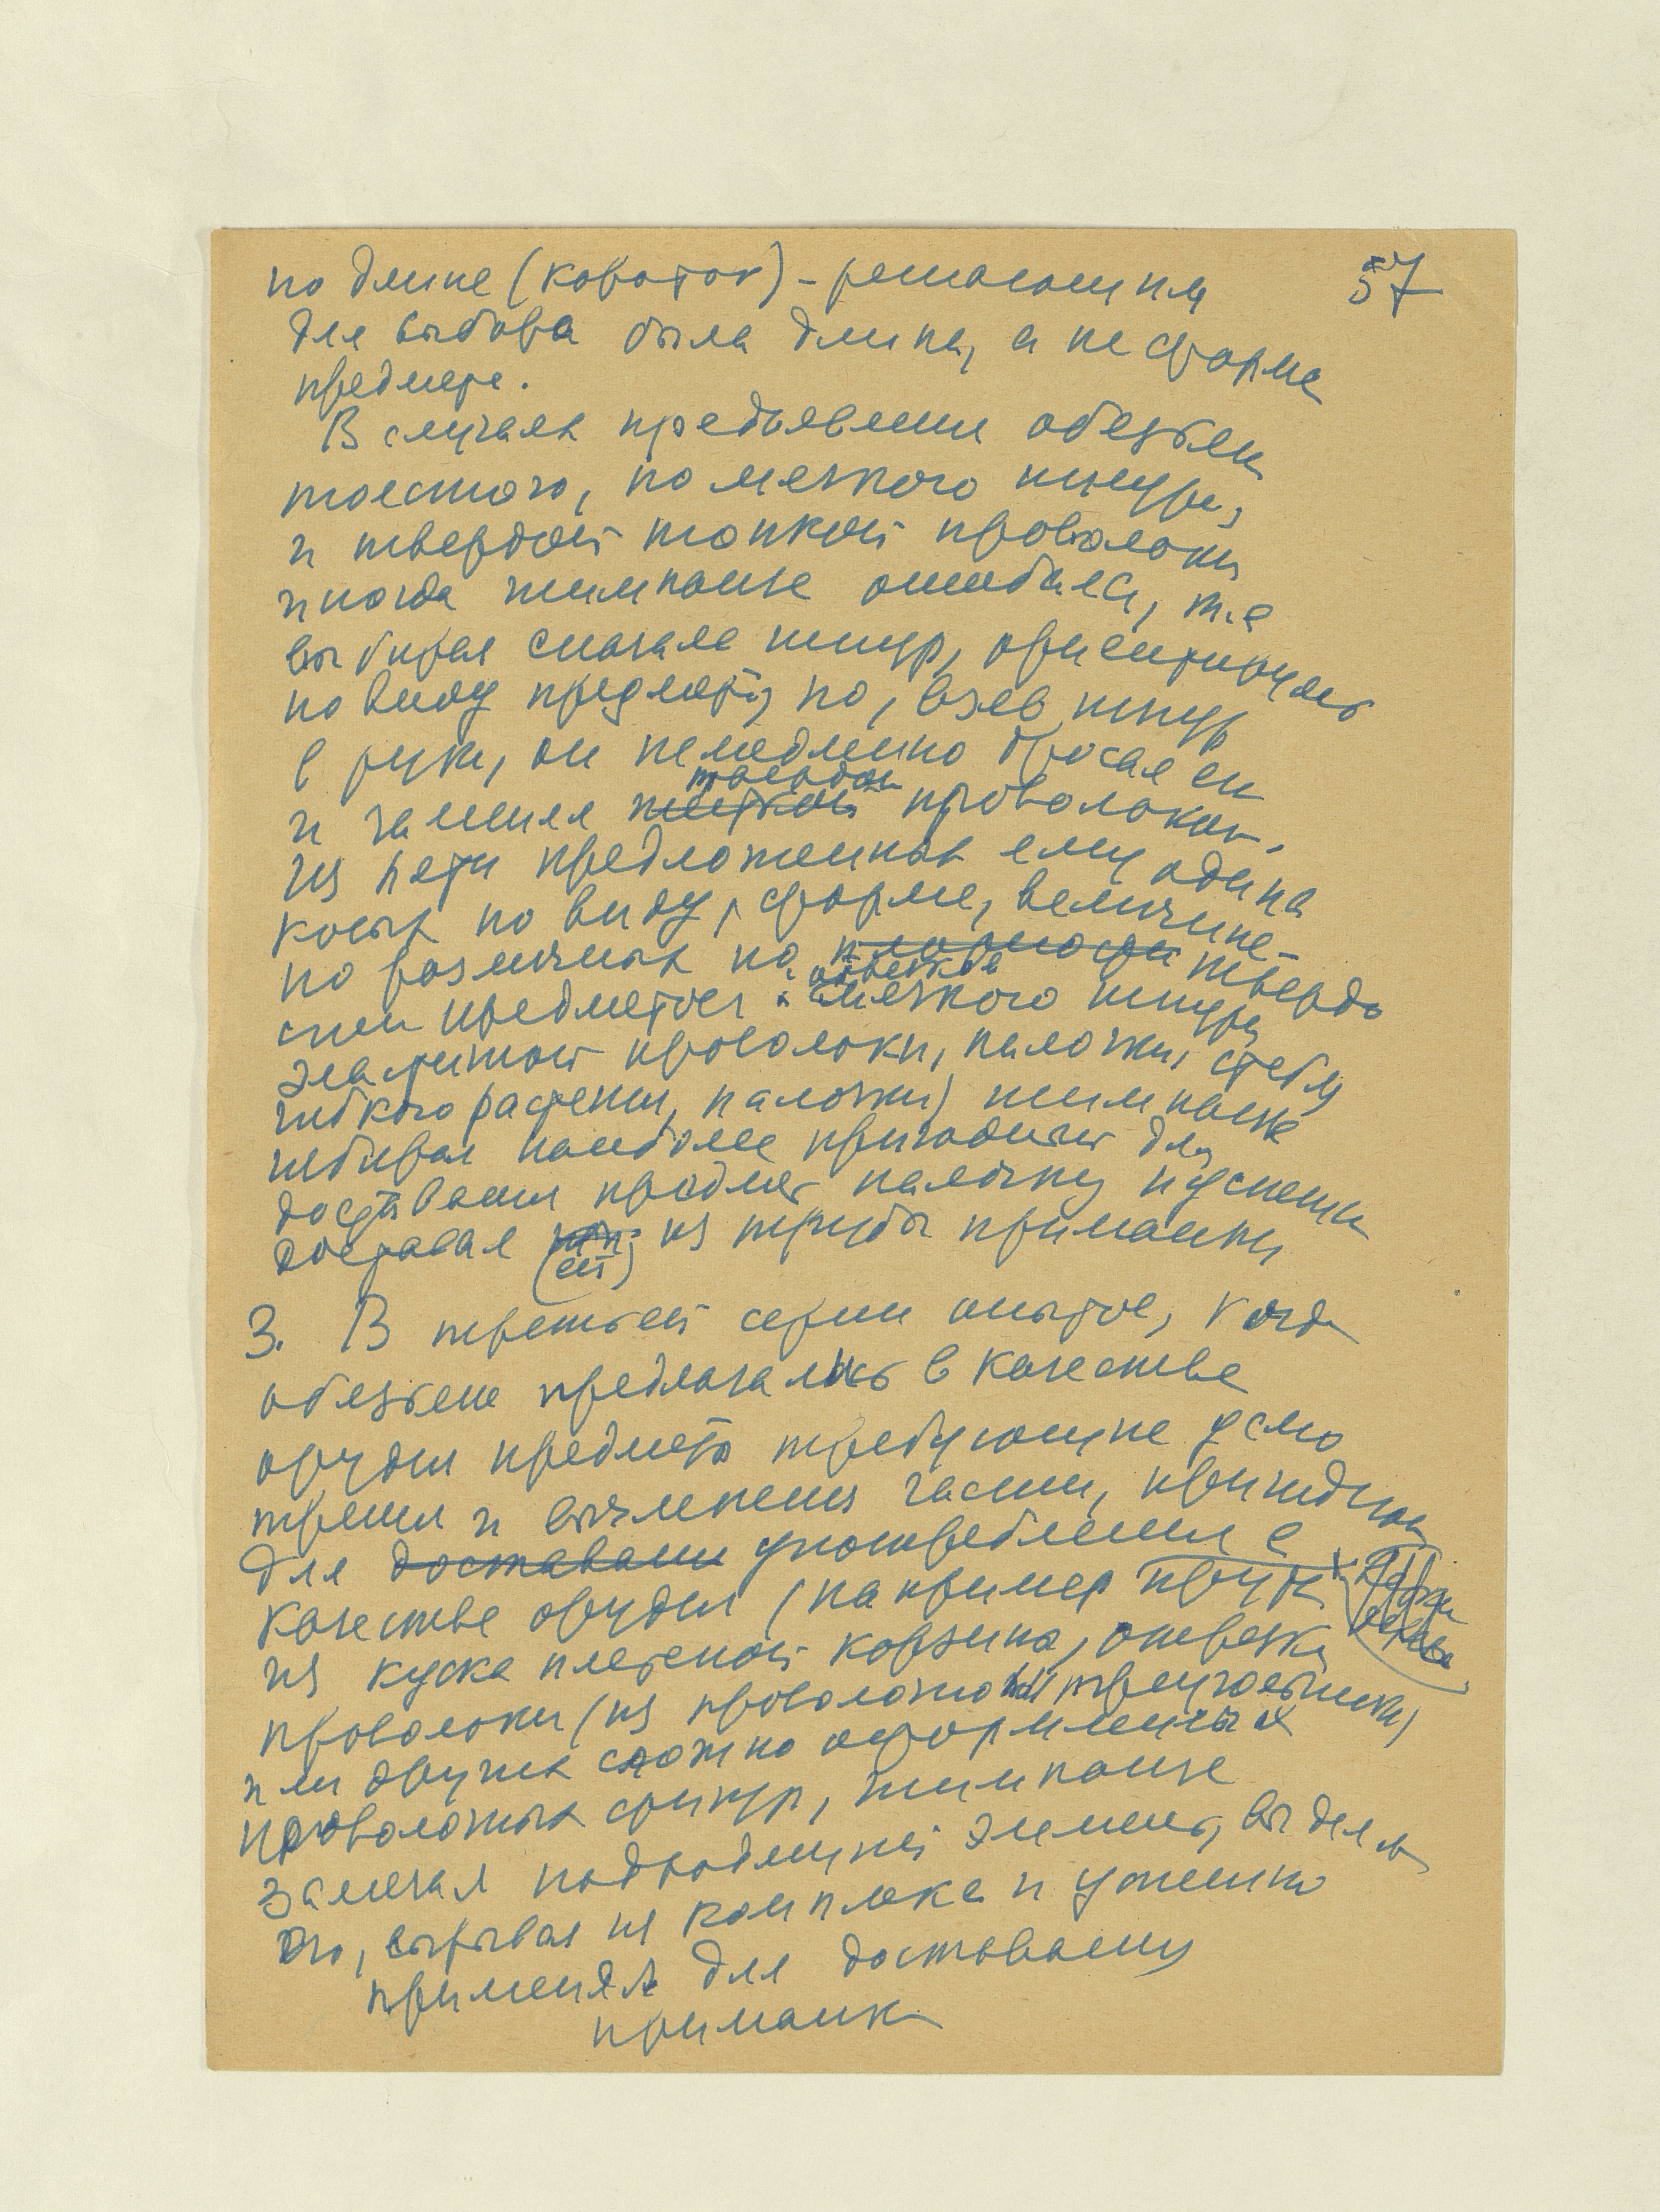 57
по длине (короток) – решающим
для выбора была длина, а не форма
предмета.
В случаях предъявления обезьяне
толстого, но мягкого шнура,
и твердой тонкой проволоки
иногда шимпанзе ошибался, т.е
выбирал сначала шнур, ориентируясь
по виду предмета, но, взяв шнур
в руки, он немедленно бросал его
твердой
и заменял проволокой.
Из пяти предложенных ему одина
ковых по виду, форме, величине –
но различных по плотности твердо
отрезков
сти предметов: мягкого шнура
эластичной проволоки, палочки, стебля
гибкого растения, палочки) шимпанзе
избирал наиболее пригодный для
доставания предмет палочку и успешно
доставал из трубы приманку
(ей)
3. В третьей серии опытов, когда
обезьяне предлагались в качестве
орудия предметы требующие усмо
трения и вычленения части, пригодной
для доставания употребления в
качестве орудия (например прута
из куска плетеной корзины, отрезка
проволоки (из проволочной треугольники)
или других сложно оформленных
проволочных фигур, шимпанзе
замечал подходящий элемент, выделял
его, вырывал из комплекса и успешно
применял для доставания
приманки